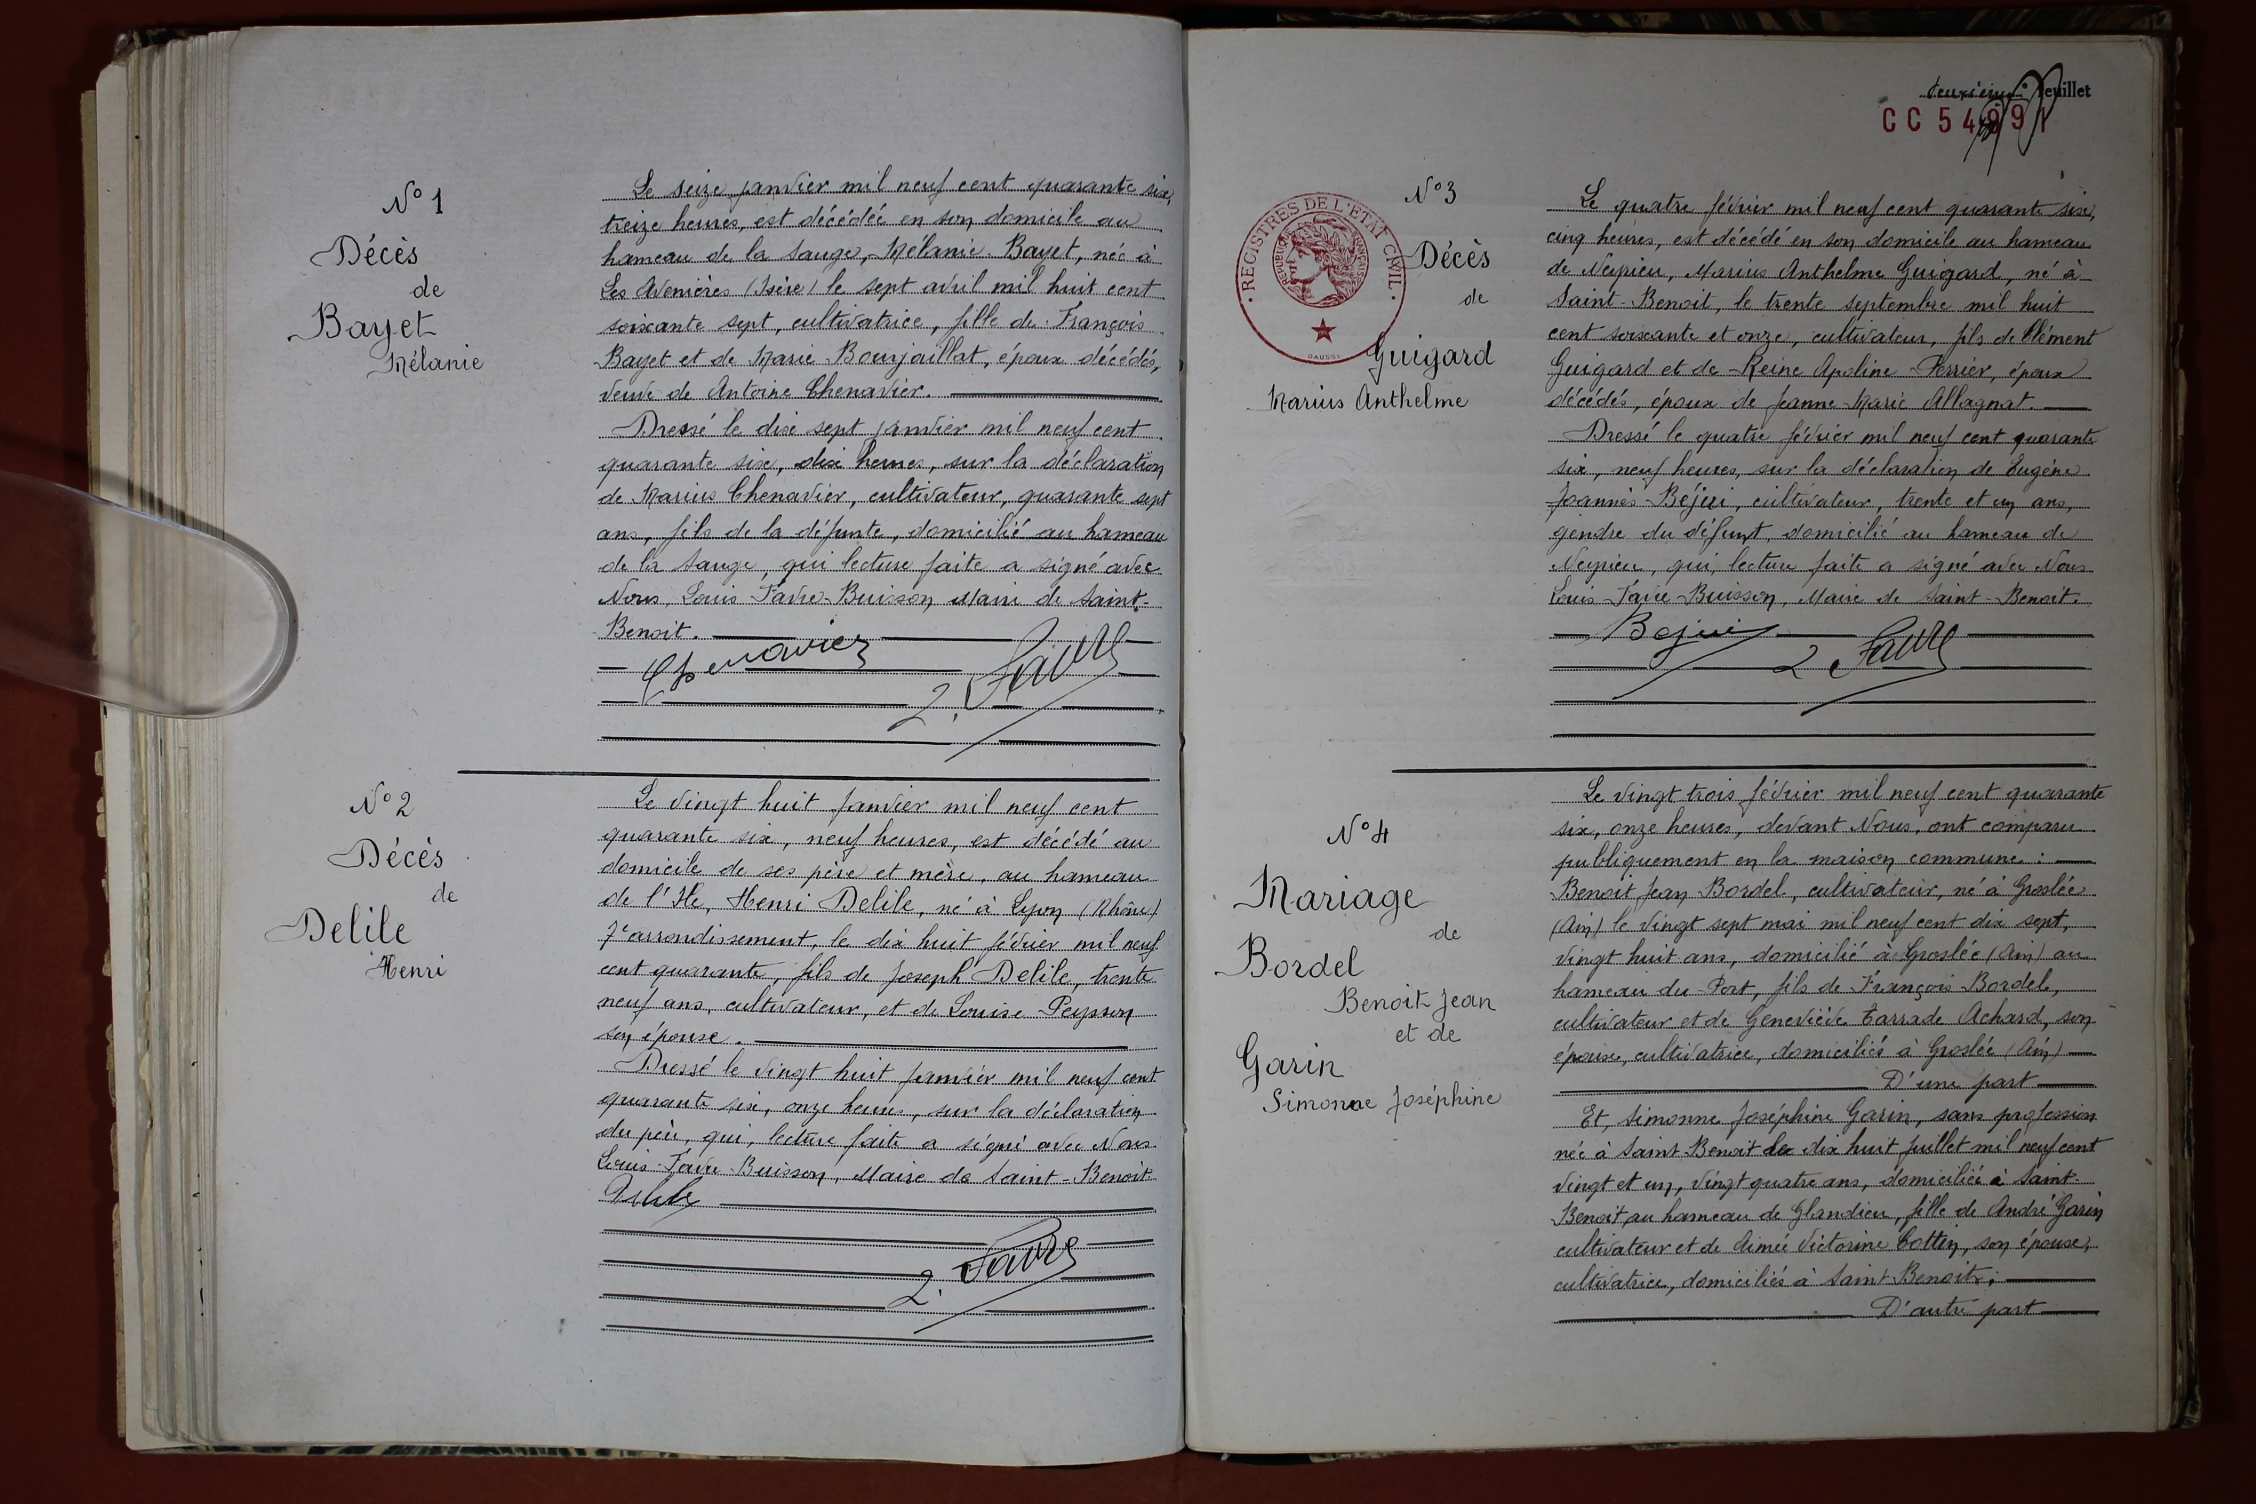 N° 1
Décès
de
Bayet
Mélanie
Le seize janvier mil neuf cent quarante six,
treize heures, est décédée en son domicile au
hameau de la Sauge, Mélanie Bayet, née à
Les Avenières (Isère) le sept avril mil huit cent
soixante sept, cultivatrice, fille de François
Bayet et de Marie Bourjaillat, époux décédés,
veuve de Antoine Chenavier.
Dressé le dix sept janvier mil neuf cent
quarante six, dix heures, sur la déclaration
de Marius Chenavier, cultivateur, quarante sept
ans, fils de la défunte, domicilié au hameau
de la Sauge, qui lecture faite a signé avec
Nous, Louis Favre-Buisson Maire de Saint-
Benoit.
Chenavier
L. Favre
N° 2
Décès
de
Delile
Henri
Le vingt huit janvier mil neuf cent
quarante six, neuf heures, est décédé au
domicile de ses père et mère, au hameau
de l'Ile, Henri Delile, né à Lyon (Rhône)
7e arrondissement, le dix huit février mil neuf
cent quarante, fils de Joseph Delile, trente
neuf ans, cultivateur, et de Louise Peysson
son épouse.
Dressé le vingt huit janvier mil neuf cent
quarante six, onze heures, sur la déclaration
du père, qui, lecture faite a signé avec Nous
Louis Favre-Buisson, Maire de Saint-Benoit
Delile
L. Favre
deuxième feuillet
CC 54991
REGISTRES DE L'ETAT CIVIL
REPUBLIQUE FRANÇAISE
DAUSSI
N° 3
Décès
de
Guigard
Marius Anthelme
Le quatre février mil neuf cent quarante six,
cinq heures, est décédé en son domicile au hameau
de Neyrieu, Marius Anthelme Guigard, né à
Saint-Benoit, le trente septembre mil huit
cent soixante et onze, cultivateur, fils de Clément
Guigard et de Reine Apoline Perrier, époux
décédés, époux de Jeanne Marie Allagnat.
Dressé le quatre février mil neuf cent quarante
six, neuf heures, sur la déclaration de Eugène
Joannès Béjui, cultivateur, trente et un ans,
gendre du défunt, domicilié au hameau de
Neyrieu, qui, lecture faite a signé avec Nous
Louis Favre-Buisson, Maire de Saint-Benoit.
Bejui
L. Favre
N° 4
Mariage
de
Bordel
Benoit Jean
et de
Garin
Simonne Joséphine
Le vingt trois février mil neuf cent quarante
six, onze heures, devant Nous, ont comparu
publiquement en la maison commune :
Benoit Jean Bordel, cultivateur, né à Groslée
(Ain) le vingt sept mai mil neuf cent dix sept,
vingt huit ans, domicilié à Groslée (Ain) au
hameau du Port, fils de François Bordel,
cultivateur et de Geneviève Tarrade Achard, son
épouse, cultivatrice, domiciliés à Groslée (Ain)
D'une part
Et, Simonne Joséphine Garin, sans profession
née à Saint Benoit le dix huit juillet mil neuf cent
vingt et un, vingt quatre ans, domiciliée à Saint-
Benoit au hameau de Glandieu, fille de André Garin
cultivateur et de Aimée Victorine Cottin, son épouse,
cultivatrice, domiciliés à Saint Benoit;
D'autre part